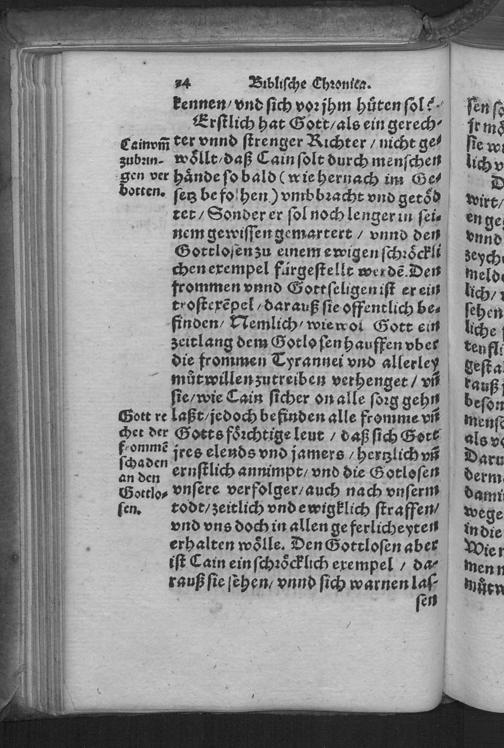 24 Biblische Chronica.
kennen/ vnd sich vor jhm hüten sol?
Erstlich hat Gott/ als ein gerech-
ter vnnd strenger Richter/ nicht ge-
wöllt/ daß Cain solt durch menschen
hände so bald (wie hernach im Ge-
setz befohlen) vmbbracht vnd getöd
tet/ Sonder er sol noch lenger in sei-
nem gewissen gemartert/ vnnd den
Gottlosen zu einem ewigen schröckli
chen exempel fürgestellt werdē. Den
frommen vnnd Gottseligen ist er ein
trostexēpel/ darauß sie offentlich be-
finden/ Nemlich/ wie wol Gott ein
zeitlang dem Gotlosen hauffen vber
die frommen Tyrannei vnd allerley
mütwillen zutreiben verhenget/ vñ
sie/ wie Cain sicher on alle sorg gehn
laßt/ jedoch befinden alle fromme vñ
Gotts förchtige leut/ daß sich Gott
jres elends vnd jamers/ hertzlich vñ
ernstlich annimpt/ vnd die Gotlosen
vnsere verfolger/ auch nach vnserm
todt/ zeitlich vnd ewigklich straffen/
vnd vns doch in allen geferlicheyten
erhalten wölle. Den Gottlosen aber
ist Cain ein schröcklich exempel/ da-
rauß sie sehen/ vnnd sich warnen las-
sen
Cain vm̄
zubrin-
gen ver
botten.
Gott re
chet der
frommē
schaden
an den
Gottlo-
sen.
sen so
sie w
lich v
D
wirt/
en ge
vnnd
zeych
melde
lich/
sehen
liche
ten fli
gesta
rauß
beson
mensc
als v
Daru
derm
dami
wege
in die
Wie
men
mütw